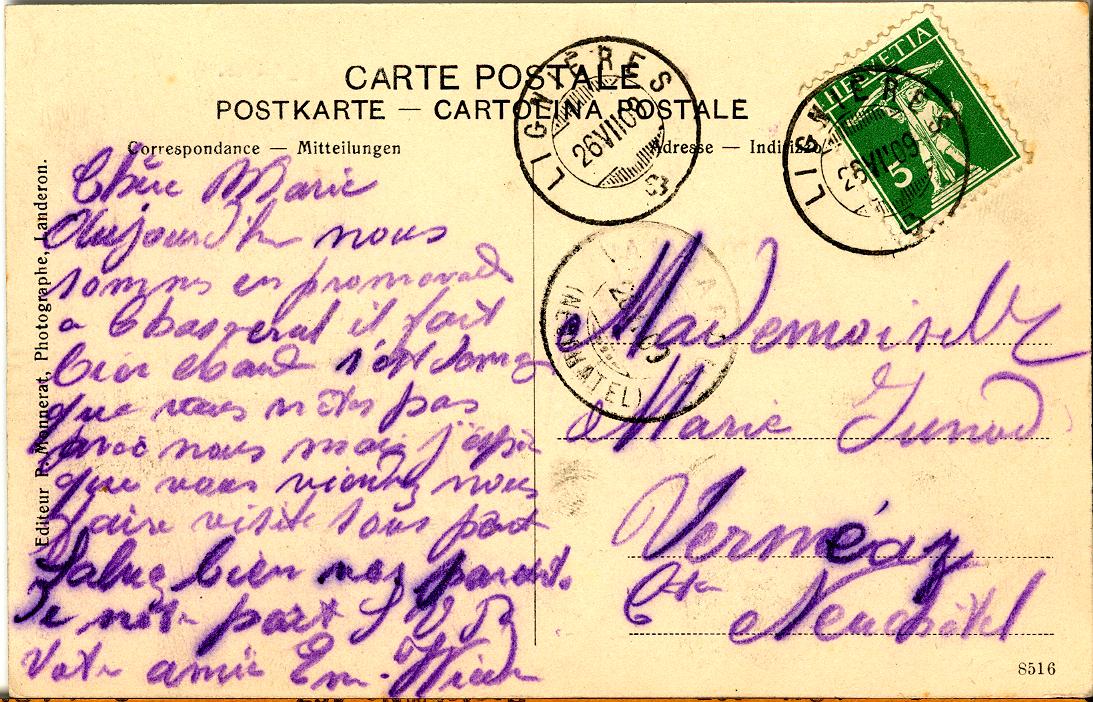 CARTE POSTALE
POSTKARTE — CARTOLINA POSTALE
Correspondance — Mitteilungen
Adresse — Indirizzo
LIGNIÈRES
26 VII 09
LIGNIÈRES
26 VII 09
HELVETIA
5
(NEUCHATEL)
Editeur P. Monnerat, Photographe, Landeron.
Chère Marie
Aujourd'h nous
sommes en promenade
a Chasseral il fait
bien chaud
que vous n'êtes pas
avec nous mais j'espère
que vous viendrez nous
faire visite sous peut
Saluez bien vos parents
De notre part S V P
Votre amie Em.
Mademoiselle
Marie Junod
Vernéaz
Cton Neuchâtel
8516